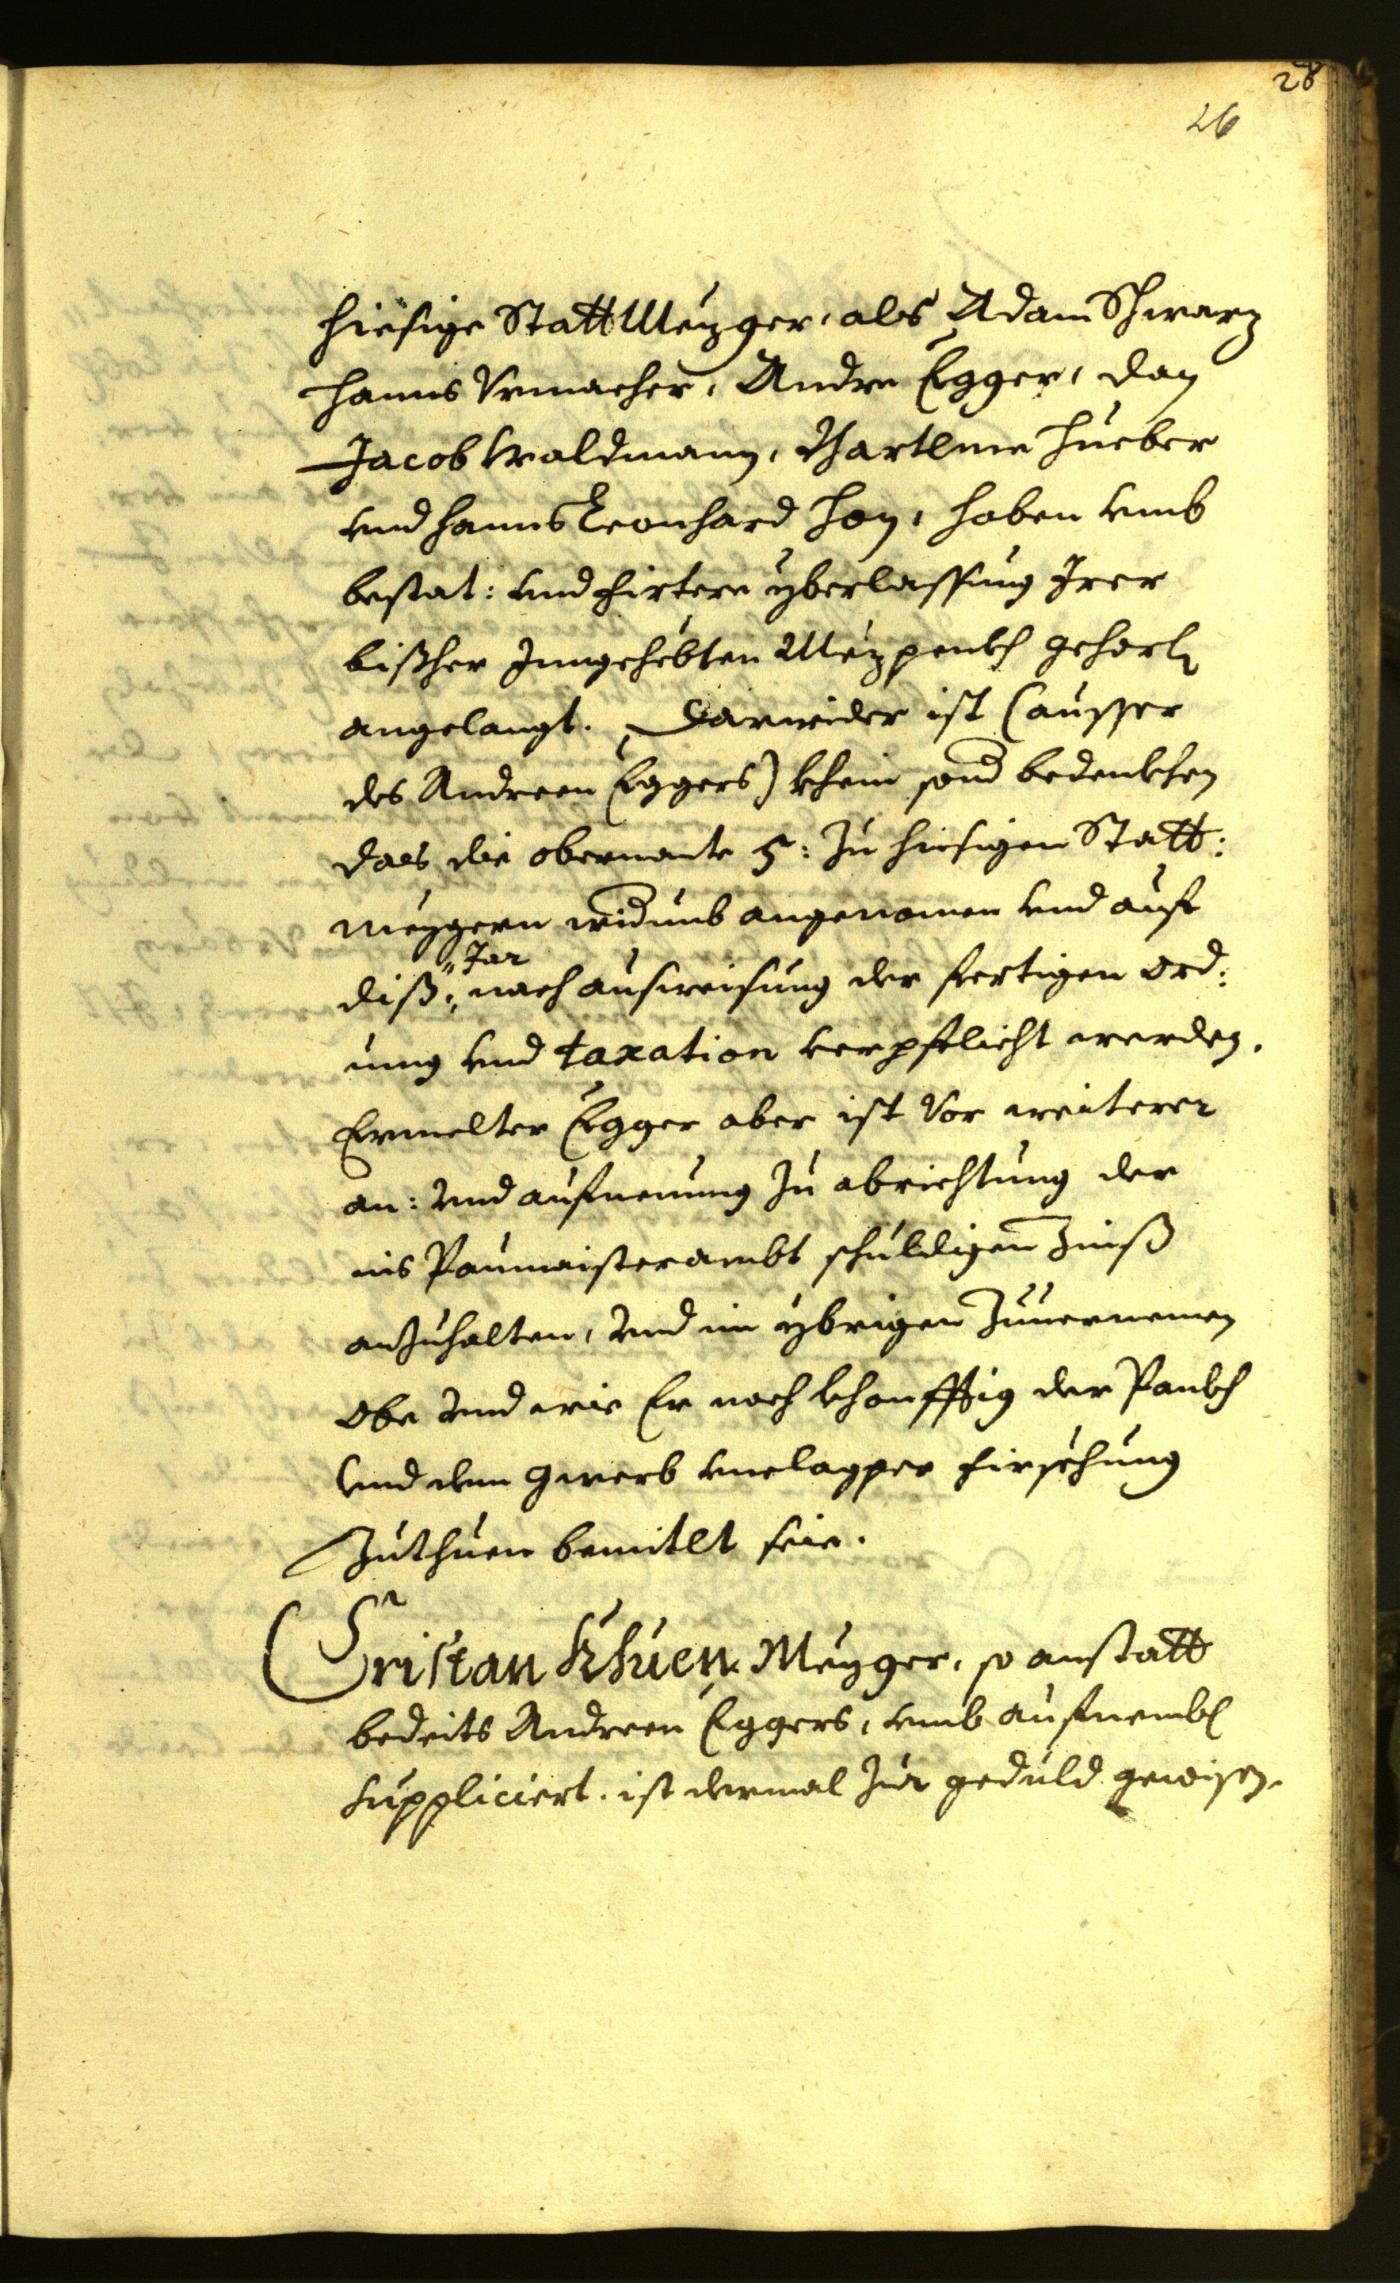 28
26
hiesige Statt Mezger, als Adam Schwarz
Hanns Vrmacher, Andre Egger, dan
Jacob Waldmann, Bartlme Hueber
vnd Hanns Leonhard Hon, haben vmb
bestat: vnd firtere yberlassung Irer
bißher Inngehebten Mezpenkh gehorl
angelangt. Darwider ist (ausser
des Andreen Eggers) khein sond bedenkhen
das die obernante 5: zu hiesigen Statt:
mezgern widumb angenomen vnd auf
diß Jar nach ausweisung der fertigen Ord:
nung vnd taxation verpflicht werden.
Ermelter Egger aber ist Vor weiterer
an: vnd aufnemung zu abrichtung der
ins Paumaisterambt schuldigen Zinß
anzuhalten, vnd im ybrigen zuuernemen
Obe vnd wie Er noch khonfftig der Pankh
vnd dem Gwerb firsehung
zuthuen bemitlt seie.
Cristan Khuen Mezger, so anstatt
bedeits Andreen Eggers, vmb aufnembl
suppliciert. ist dermal zur geduld gewisen.